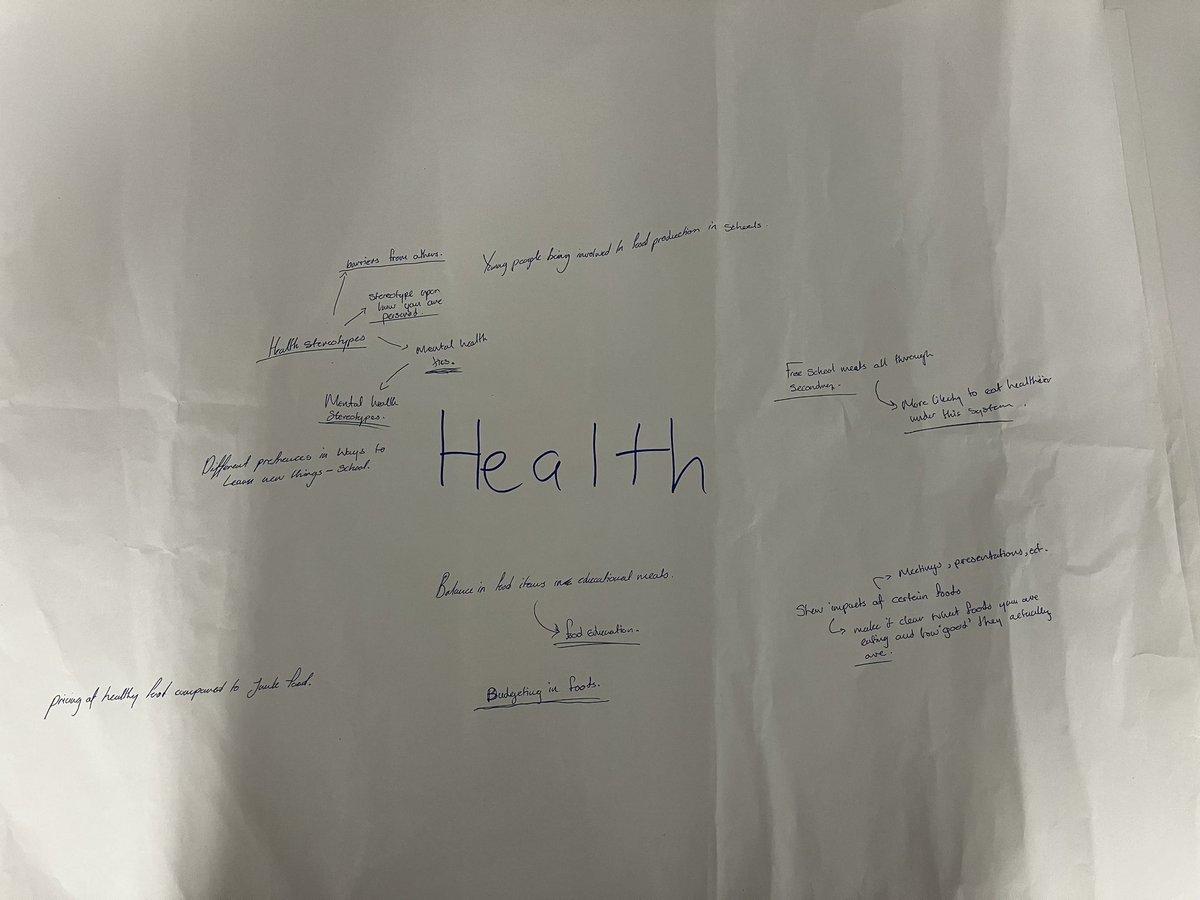 barriers from others.
Young people being involved in food production in schools.
stereotype upon
how you are
persona
Health stereotypes
Mental health
tics.
Mental health
Stereotypes.
Free school meals all through
secondary.
More likely to eat healthier
under this system.
Health
Different prefrences in ways to
Learn new things - school.
Balance in food items in educational meals.
food education.
Meetings, presentations, ect.
Show impacts of certain foods
make it clear what foods you are
eating and how "good" they actually
are.
Budgeting in foods.
pricing of healthy food compared to Junk food.